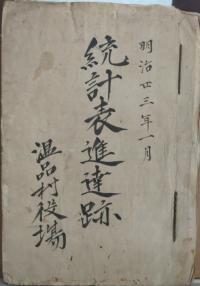 明治廿三年一月
統計表進達跡
温品村役場